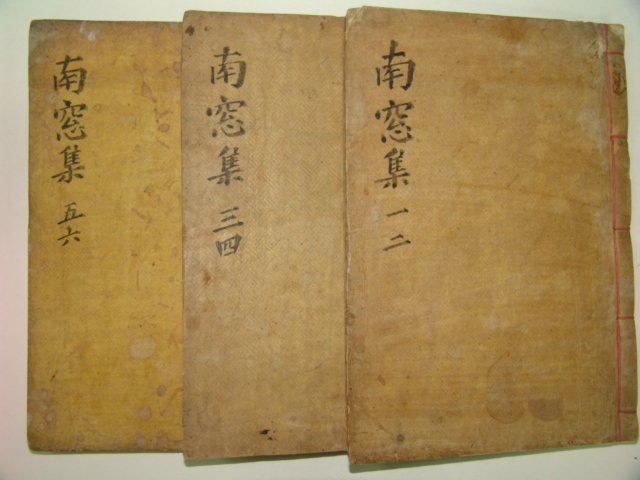 南窓集 一二
南窓集 三四
南窓集 五六